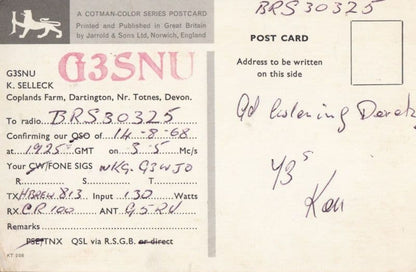 A COTMAN-COLOR SERIES POSTCARD
Printed and Published in Great Britain
by Jarrold & Sons Ltd, Norwich, England
G3SNU
G3SNU
K. SELLECK
Coplands Farm, Dartington, Nr. Totnes, Devon.
To radio BRS30325
Confirming our QSO of 14-8-68
at 1925 GMT on 3.5 Mc/s
Your CW/FONE SIGS WKG. G3WJO
R. S. T.
TX HBREW 813 Input 130 Watts
RX CR100 ANT G5RV
Remarks
PSE TNX QSL via R.S.G.B. or direct
KT 206
BRS30325
POST CARD
Address to be written
on this side
Gd listening
73s
Ken